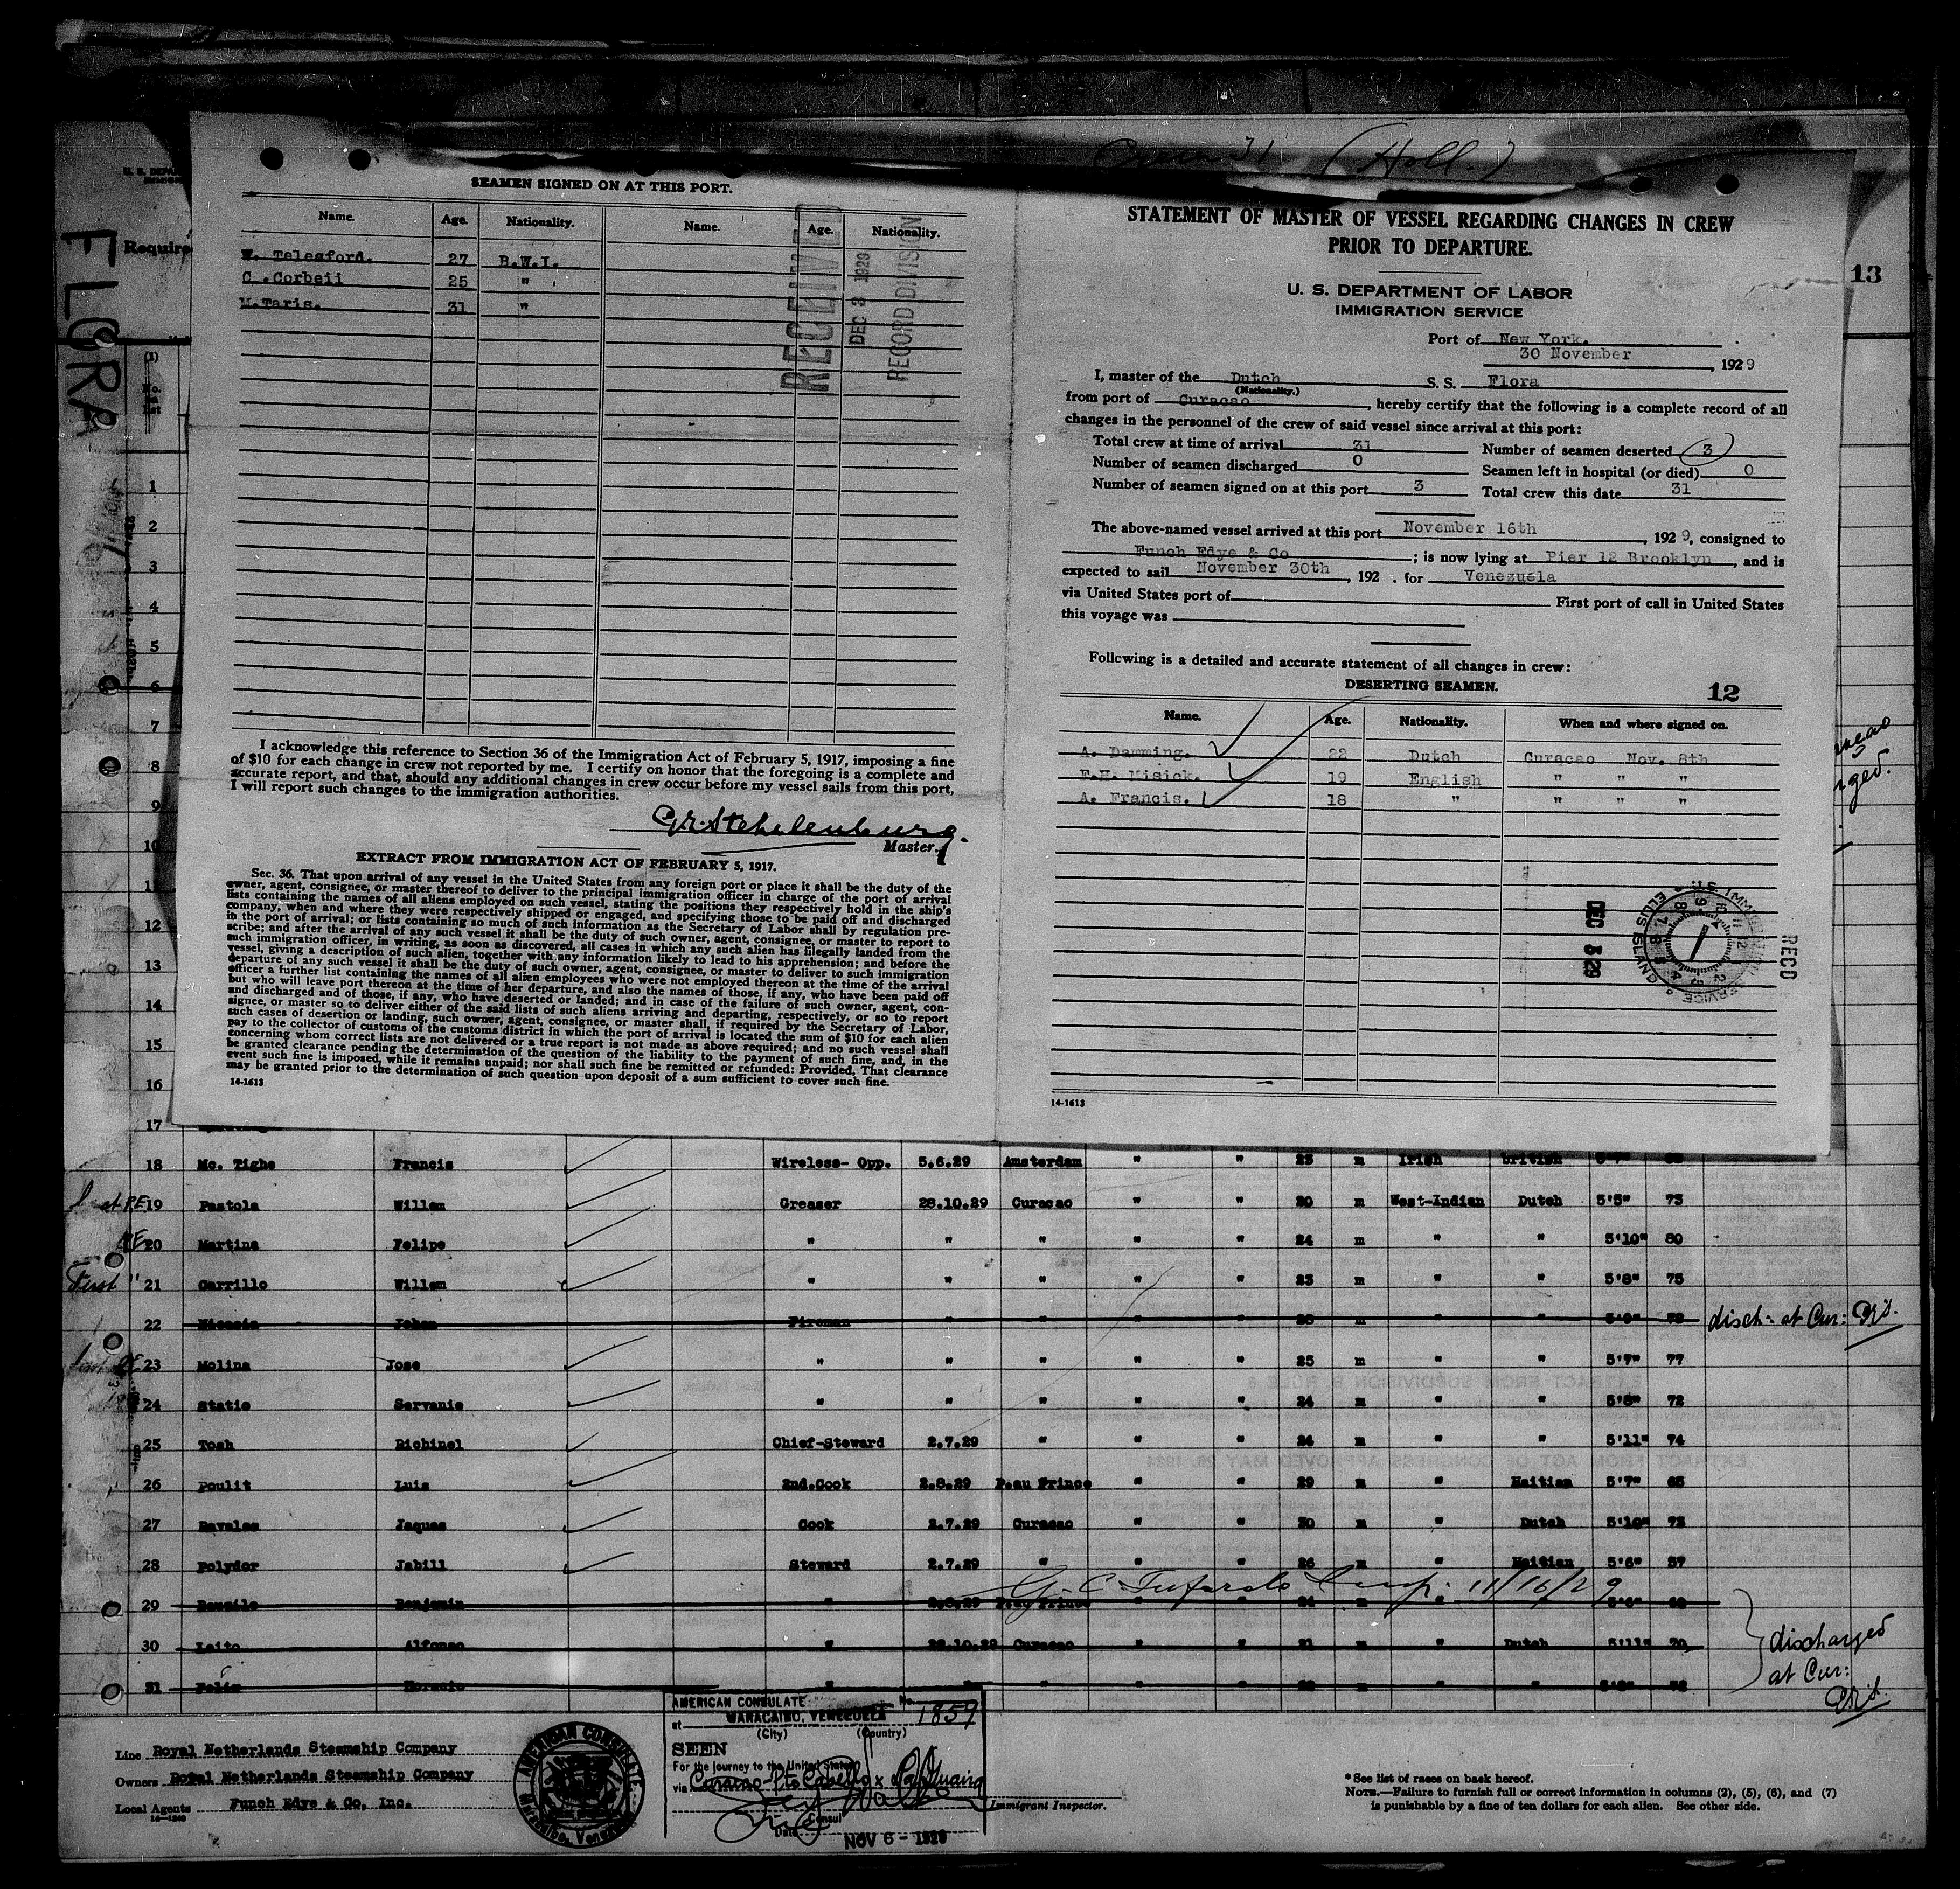 Crew 31 (Holl.)
FLORA
U. S. DEPA
Require
13
(1)
No.
on
List
SEAMEN SIGNED ON AT THIS PORT.
Name. Age. Nationality. Name. Age. Nationality.
W. Telesford. 27 B.W.I.
C .Corbeii 25 "
M.Taris. 31 "
RECEIVED
DEC 3 1929
RECORD DIVISION
I acknowledge this reference to Section 36 of the Immigration Act of February 5, 1917, imposing a fine
of $10 for each change in crew not reported by me. I certify on honor that the foregoing is a complete and
accurate report, and that, should any additional changes in crew occur before my vessel sails from this port,
I will report such changes to the immigration authorities.
Master.
EXTRACT FROM IMMIGRATION ACT OF FEBRUARY 5, 1917.
Sec. 36. That upon arrival of any vessel in the United States from any foreign port or place it shall be the duty of the
owner, agent, consignee, or master thereof to deliver to the principal immigration officer in charge of the port of arrival
lists containing the names of all aliens employed on such vessel, stating the positions they respectively hold in the ship's
company, when and where they were respectively shipped or engaged, and specifying those to be paid off and discharged
in the port of arrival; or lists containing so much of such information as the Secretary of Labor shall by regulation pre-
scribe; and after the arrival of any such vessel it shall be the duty of such owner, agent, consignee, or master to report to
such immigration officer, in writing, as soon as discovered, all cases in which any such alien has illegally landed from the
vessel, giving a description of such alien, together with any information likely to lead to his apprehension; and before the
departure of any such vessel it shall be the duty of such owner, agent, consignee, or master to deliver to such immigration
officer a further list containing the names of all alien employees who were not employed thereon at the time of the arrival
but who will leave port thereon at the time of her departure, and also the names of those, if any, who have been paid off
and discharged and of those, if any, who have deserted or landed; and in case of the failure of such owner, agent, con-
signee, or master so to deliver either of the said lists of such aliens arriving and departing, respectively, or so to report
such cases of desertion or landing, such owner, agent, consignee, or master shall, if required by the Secretary of Labor,
pay to the collector of customs of the customs district in which the port of arrival is located the sum of $10 for each alien
concerning whom correct lists are not delivered or a true report is not made as above required; and no such vessel shall
be granted clearance pending the determination of the question of the liability to the payment of such fine, and, in the
event such fine is imposed, while it remains unpaid; nor shall such fine be remitted or refunded: Provided, That clearance
may be granted prior to the determination of such question upon deposit of a sum sufficient to cover such fine.
14-1613
STATEMENT OF MASTER OF VESSEL REGARDING CHANGES IN CREW
PRIOR TO DEPARTURE.
U. S. DEPARTMENT OF LABOR
IMMIGRATION SERVICE
Port of New York.
30 November , 1929
I, master of the Dutch S. S. Flora
(Nationality.)
from port of Curacao , hereby certify that the following is a complete record of all
changes in the personnel of the crew of said vessel since arrival at this port:
Total crew at time of arrival 31 Number of seamen deserted 3
Number of seamen discharged 0 Seamen left in hospital (or died) 0
Number of seamen signed on at this port 3 Total crew this date 31
The above-named vessel arrived at this port November 16th , 1929, consigned to
Funch Edye & Co ; is now lying at Pier 12 Brooklyn , and is
expected to sail November 30th , 192 . for Venezuela
via United States port of First port of call in United States
this voyage was
Following is a detailed and accurate statement of all changes in crew:
DESERTING SEAMEN. 12
Name. Age. Nationality. When and where signed on.
A. Damming. 22 Dutch Curacao Nov. 8th
F.H. Misick. 19 English " " "
A. Francis. 18 " " " "
DEC 3 29
RECD
U. S. IMMIGRATION SERVICE ELLIS ISLAND
14-1613
1
2
3
4
5
6
7
8
9
10
11
12
13
14
15
16
17
18 Mc. Tighe Francis Wireless- Opp. 5.6.29 Amsterdam " " 23 m Irish British 5'7"
19 Pastola Willem Greaser 28.10.29 Curacao " " 20 m West-Indian Dutch 5'5" 73
20 Martina Felipe " " " " " 24 m " " 5'10" 80
21 Carrillo Willem " " " " " 23 m " " 5'8" 75
22 Fireman " " " " m " " disch: at Cur:
23 Molina Jose " " " " " 25 m " " 5'7" 77
24 Statie Servanie " " " " " 24 m " " 5'8" 72
25 Tosh Richinel Chief-Steward 2.7.29 " " " 24 m " " 5'11" 74
26 Poulit Luis 2nd.Cook 2.8.29 P.au Prince " " 29 m " Haitian 5'7" 65
27 Ravales Jaques Cook 2.7.29 Curacao " " 30 m " Dutch 5'10" 73
28 Polydor Jabill Steward 2.7.29 " " " 26 m " Haitian 5'6" 57
11/16/29
29 Benjamin " 2.8.29 P.au Prince " " m "
30 Leito Alfonso " 28.10.29 Curacao " " 21 m " Dutch 5'11" 70
31 Felix Horacio " " " " " m " "
discharged
at Cur:
Line Royal Netherlands Steamship Company
Owners Royal Netherlands Steamship Company
Local Agents Funch Edye & Co, Inc.
AMERICAN CONSULATE
Maracaibo, Venezuela
AMERICAN CONSULATE No. 1859
at MARACAIBO, VENEZUELA
(City) (Country)
SEEN
For the journey to the United States
via Curacao-Pto Cabello x La Guaira
Consul
Date NOV 6 - 1929
Immigrant Inspector.
*See list of races on back hereof.
NOTE.—Failure to furnish full or correct information in columns (2), (5), (6), and (7)
is punishable by a fine of ten dollars for each alien. See other side.